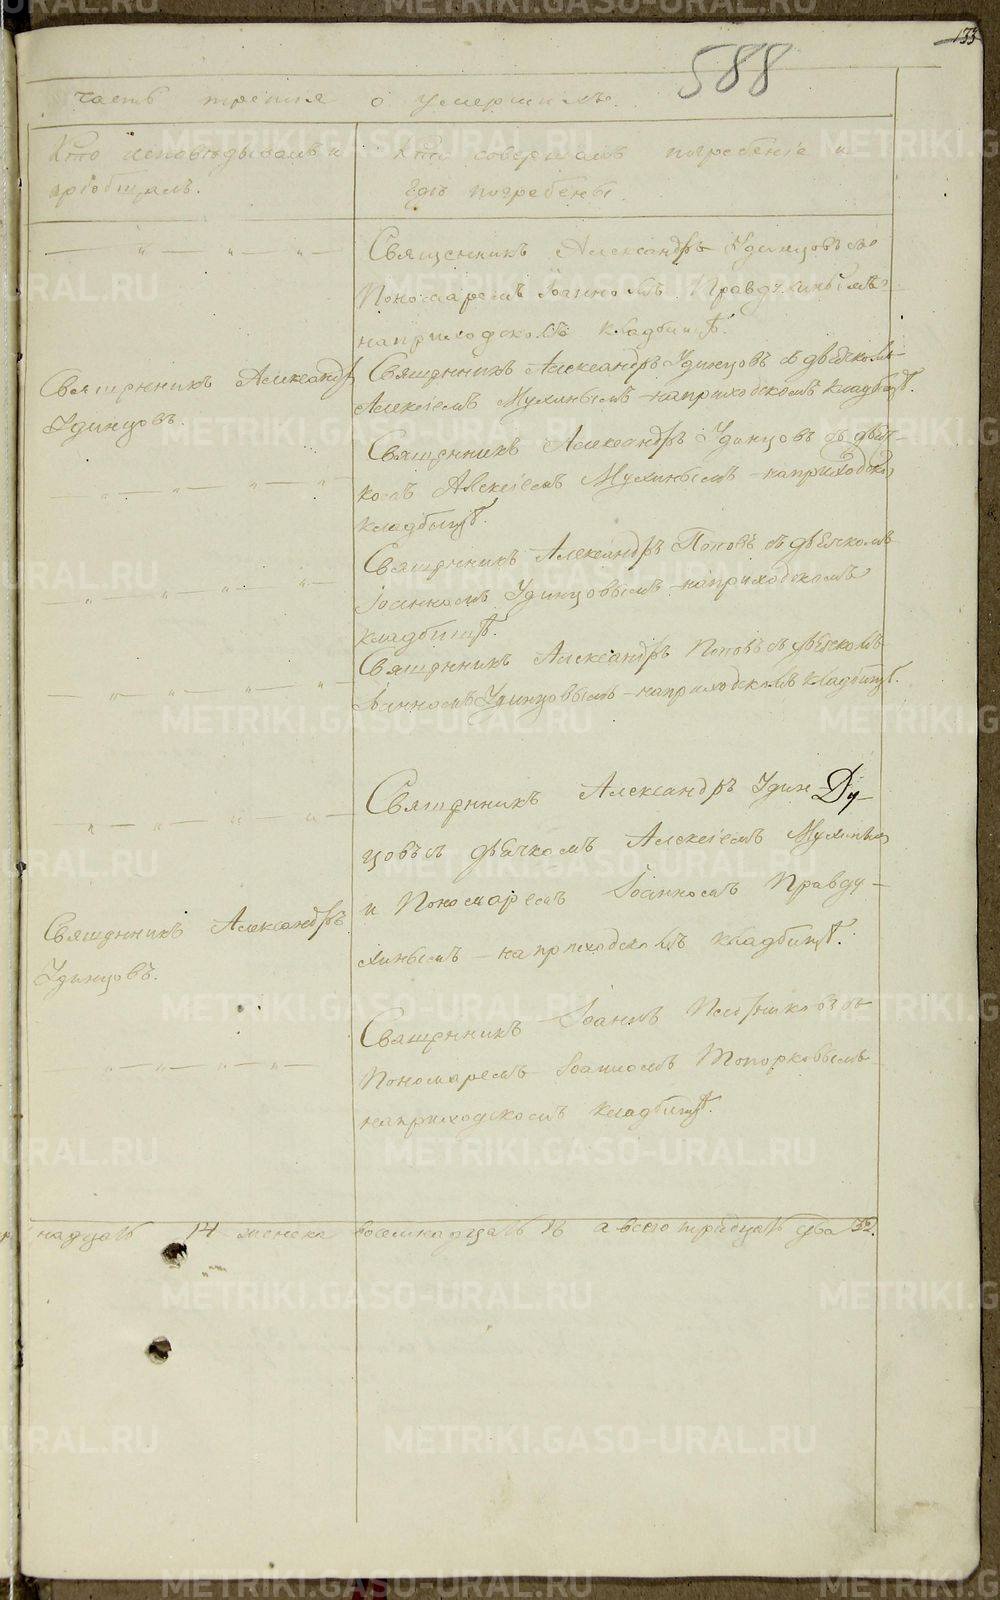 133
588
Часть третья о умершихъ.
Кто исповѣдывалъ и
пріобщалъ.
Кто совершалъ погребеніе и
гдѣ погребены.
Священникъ Александръ Удинцовъ съ
Пономаремъ Іоанномъ Правдухинымъ
наприходскомъ кладбищѣ.
Священникъ Александръ
Удинцовъ.
Священникъ Александръ Удинцовъ съ дьячкомъ
Алексіемъ Мухинымъ наприходскомъ кладбищѣ.
Священникъ Александръ Удинцовъ съ дьяч-
комъ Алексіемъ Мухинымъ наприходском
кладбищѣ.
Священникъ Александръ Поповъ съ дьячкомъ
Іоанномъ Удинцовымъ наприходскомъ
кладбищѣ.
Священникъ Александръ Поповъ съ дьячкомъ
Іоанномъ Удинцовымъ наприходскомъ кладбищѣ.
Священникъ Александръ Удин Ду-
цовъ съ дьячкомъ Алексіемъ Мухинымъ
и Пономаремъ Іоанномъ Правду-
хинымъ наприходскомъ кладбищѣ.
Священникъ Александръ
Удинцовъ.
Священникъ Іоаннъ съ
Пономаремъ Іоанномъ Топорковымъ
наприходскомъ кладбищѣ.
надцать 14 женска восемнадцать 18 а всего тридцать два 32.